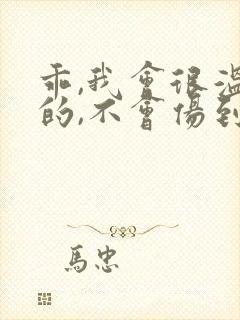 乖,我會很溫
的,不會傷到
馬忠